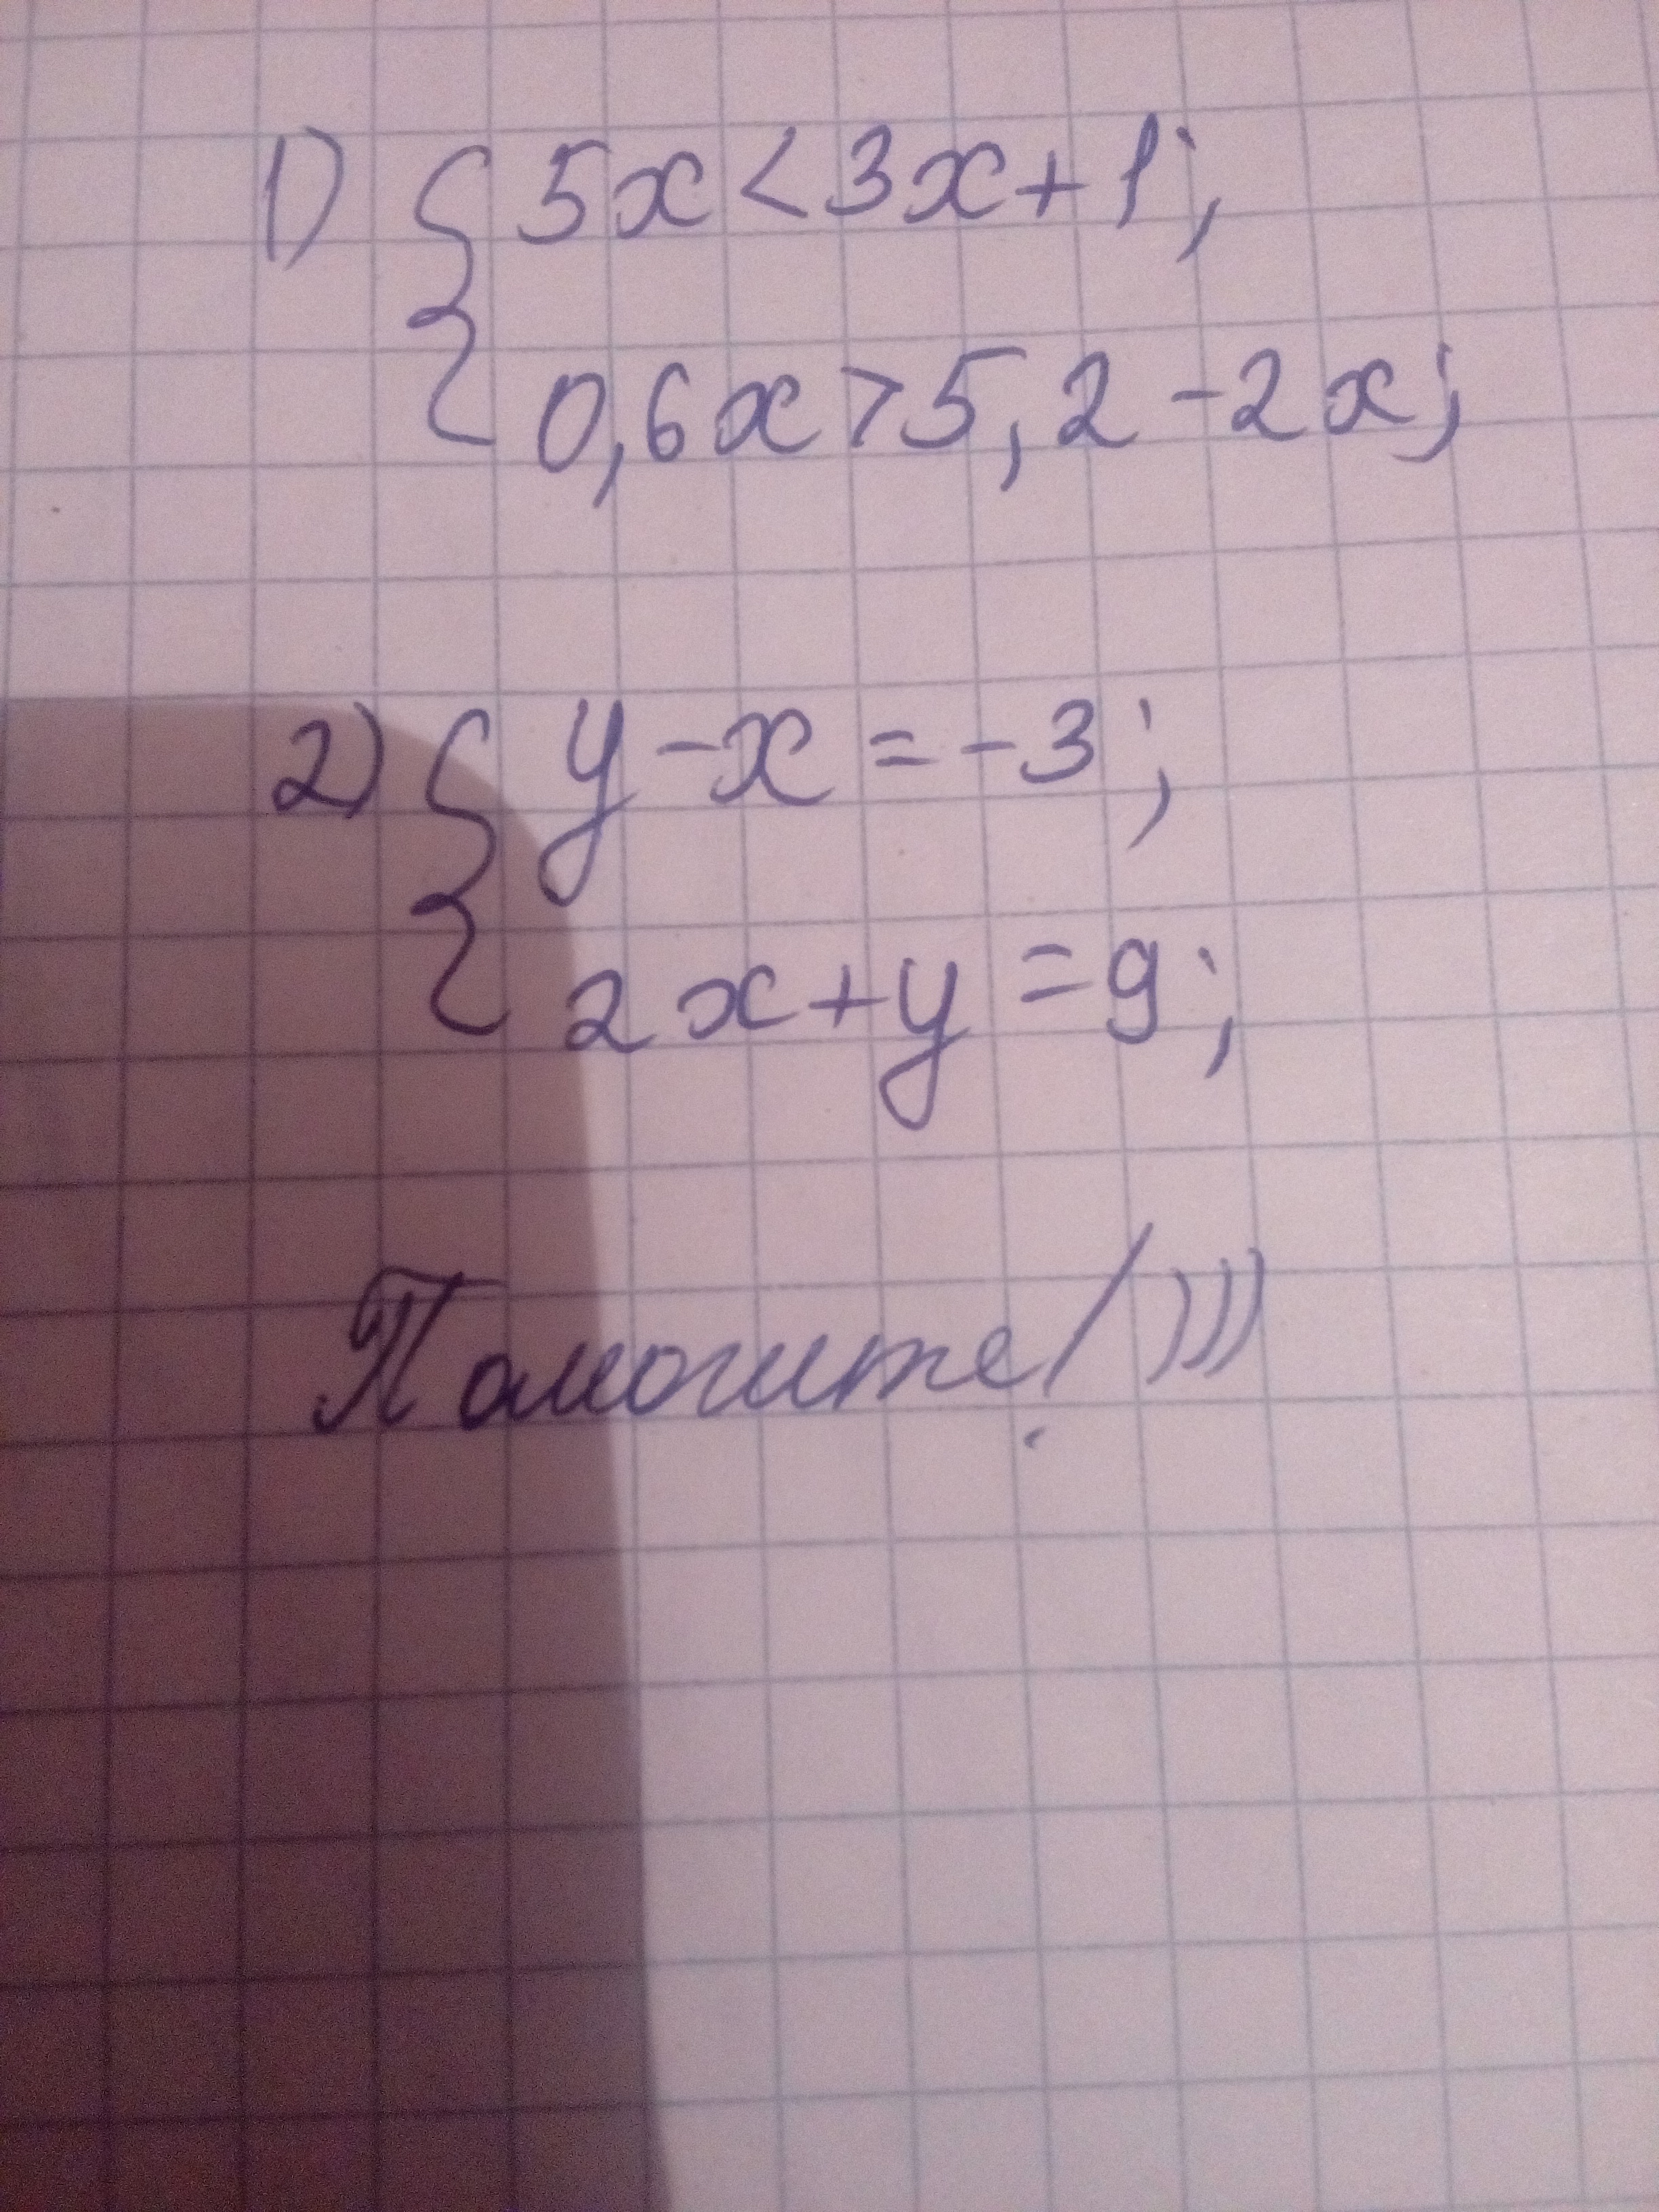 1) { 5x < 3x + 1;
0,6x > 5,2 - 2x;
2) { y - x = -3;
2x + y = 9;
Помогите! )))